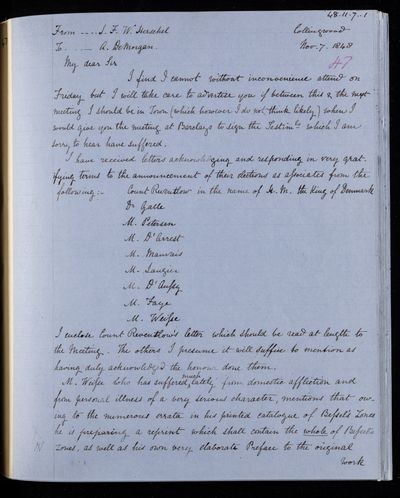 48.11.7..1
From ---- J. F. W. Herschel Collingwood
To - - - - A. DeMorgan. Nov. 7. 1848
47
My dear Sir
I find I cannot without inconvenience attend on
Friday but I will take care to advertise you if between this & the next
meeting I should be in Town (which however I do not think likely) when I
would give you the meeting at Barclays to sign the Testimls which I am
sorry to hear have suffered.
I have received letters acknowledging and responding in very grat-
ifying terms to the announcement of their elections as associates from the
following:- Count Reventlow in the name of H. M. the King of Denmark
Dr Galle
M. Petersen
M. D'Arrest
M. Mauvais
M. Laugier
M. D'Aufsy
M. Faye
M. Weifse
I enclose Count Reventlow's letter which should be read at length to
the Meeting. The others I presume it will suffice to mention as
having duly acknowledged the honour done them.
M. Weifse who has suffered much lately from domestic affliction and
from personal illness of a very serious character, mentions that ow-
ing to the numerous errata in his printed catalogue of Befsel's Zones
he is preparing a reprint which shall contain the whole of Befsel's
Zones, as well as his own very elaborate Preface to the original
work